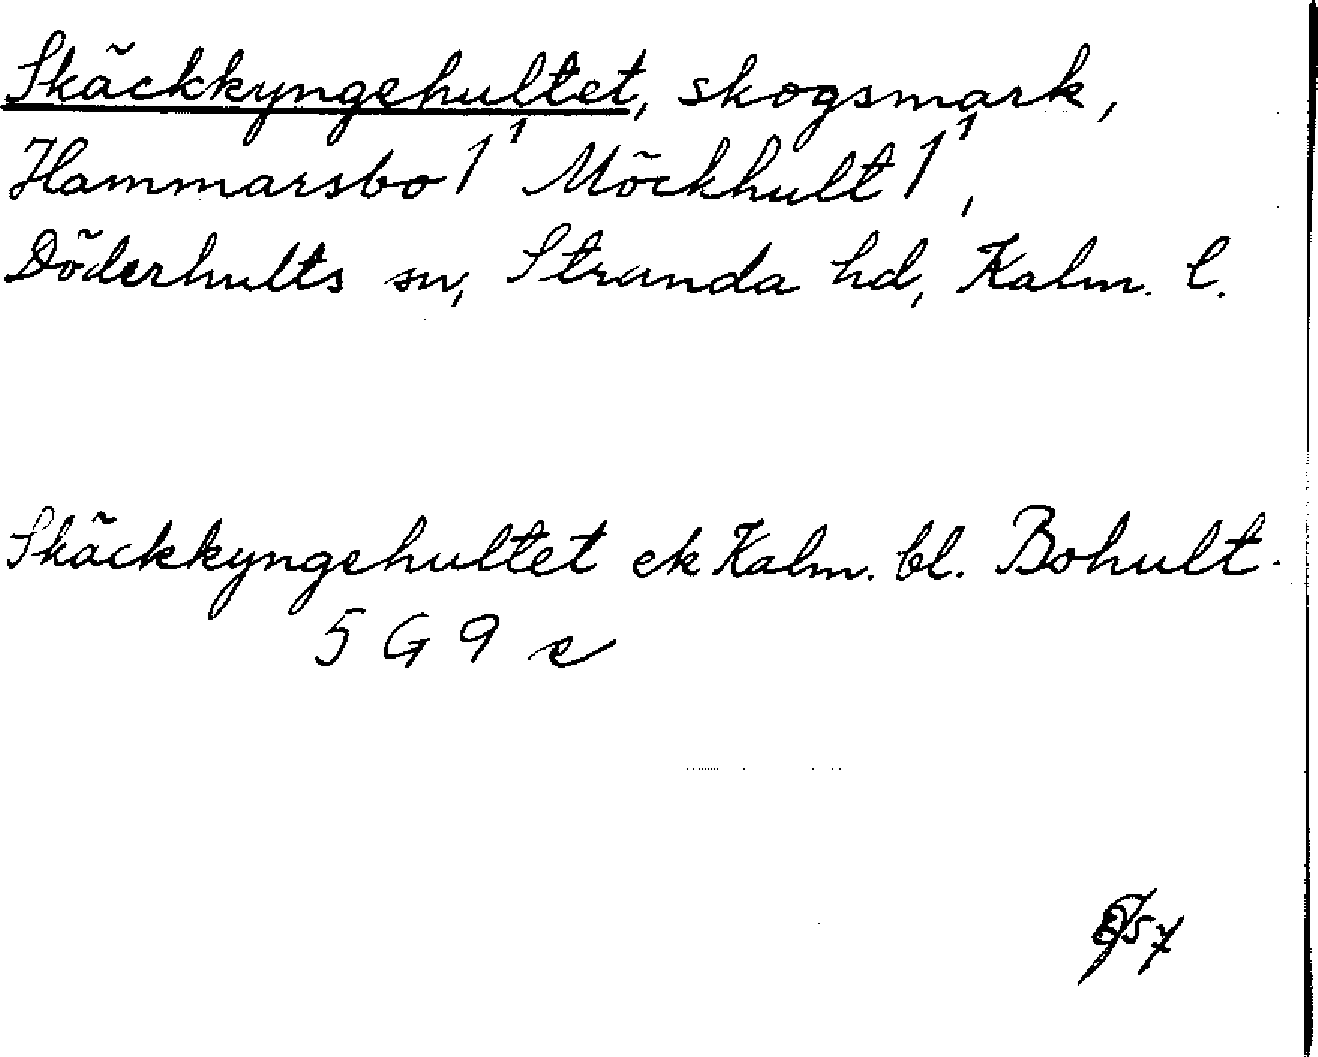 Skäckkyngehultet, skogsmark,
Hammarsbo 1¹ Möckhult 1¹,
Döderhults sn, Stranda hd, Kalm. l.
Skäckkyngehultet ek Kalm. bl. Bohult.
5 G 9 e
57